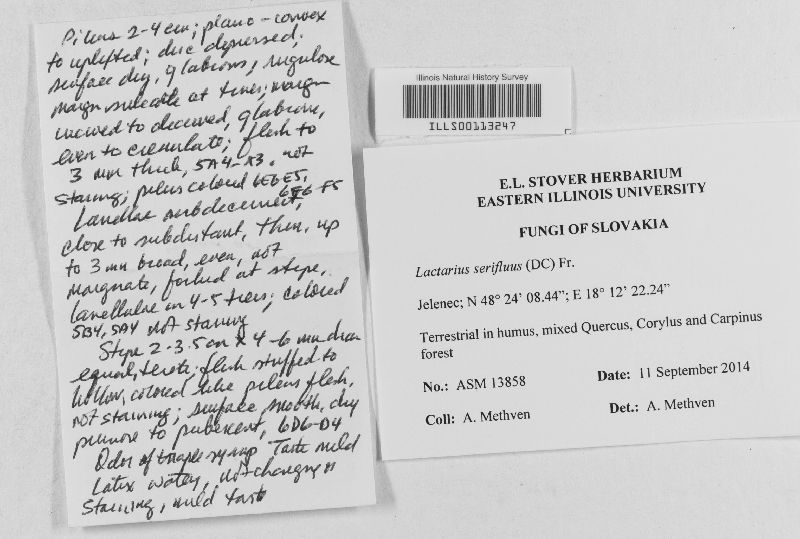 Pileus 2-4 cm; plano-convex
to uplifted; disc depressed;
surface dry, glabrous, rugulose
margin sulcate at times; margin
incurved to decurved, glabrous,
even to crenulate; flesh to
3 mm thick, 5A4-X3, not
staining; pileus colored 6E6 E5,
6F6 F5
Lamellae subdecurrent,
close to subdistant, thin, up
to 3 mm broad, even, not
marginate, forked at stipe,
lamellulae in 4-5 tiers; colored
5B4, 5A4 not staining
Stipe 2-3.5 cm x 4-6 mm diam
equal, terete; flesh stuffed to
hollow, colored like pileus flesh,
not staining; surface smooth, dry
pruinose to pubescent, 6D6-D4
Odor of maple syrup Taste mild
Latex watery, not changing or
staining, mild taste
Illinois Natural History Survey
ILLS00113247
E.L. STOVER HERBARIUM
EASTERN ILLINOIS UNIVERSITY
FUNGI OF SLOVAKIA
Lactarius serifluus (DC) Fr.
Jelenec; N 48° 24' 08.44”; E 18° 12' 22.24”
Terrestrial in humus, mixed Quercus, Corylus and Carpinus
forest
No.: ASM 13858 Date: 11 September 2014
Coll: A. Methven Det.: A. Methven